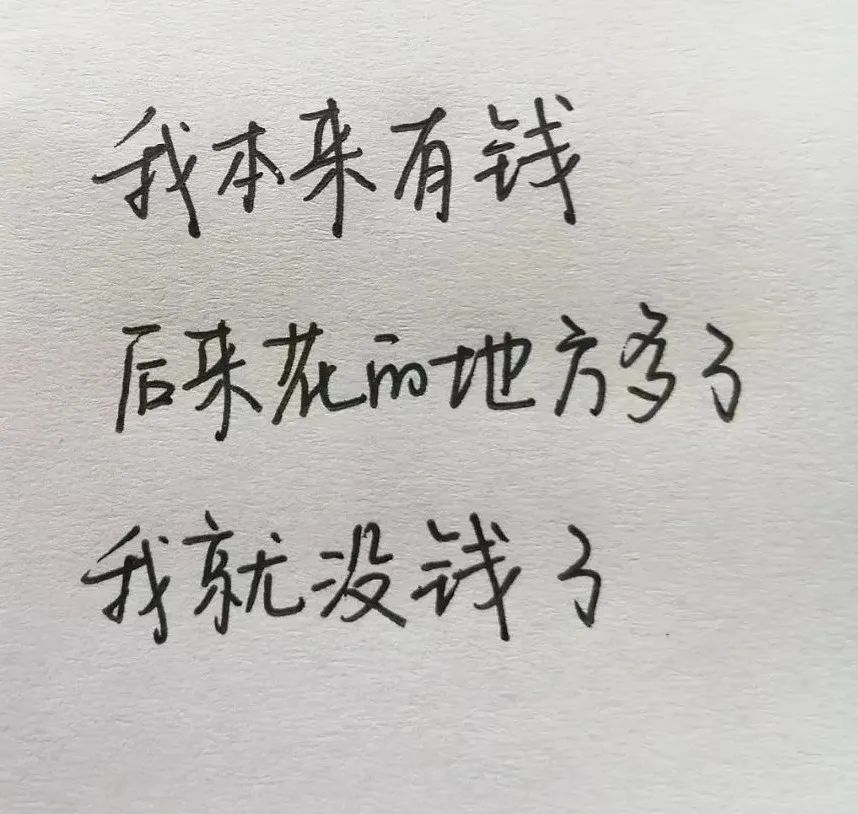 我本来有钱
后来花的地方多了
我就没钱了